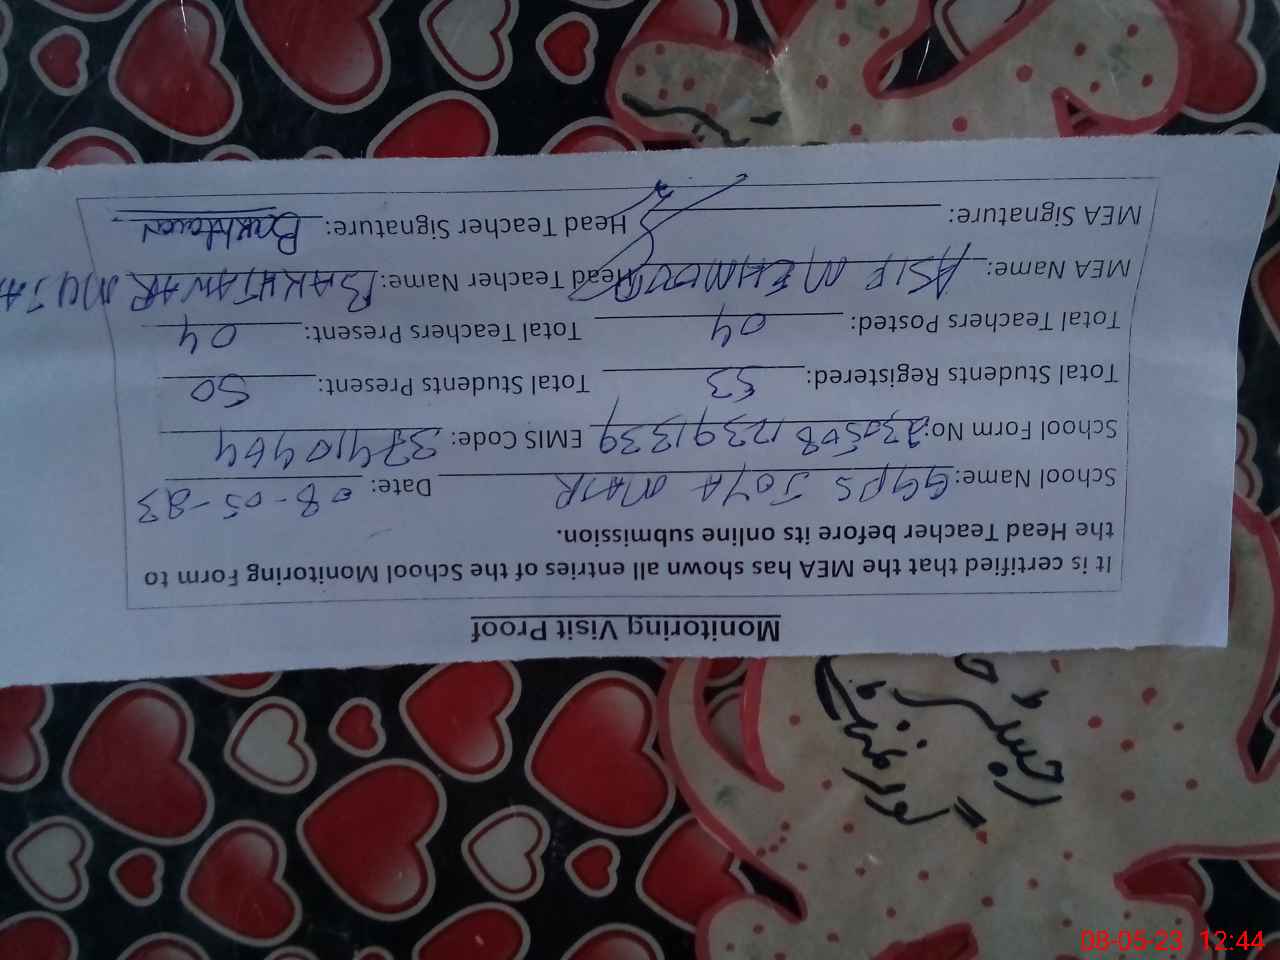 Monitoring Visit Proof
It is certified that the MEA has shown all entries of the School Monitoring Form to
the Head Teacher before its online submission.
School Name: GGPS JOYA MAIR Date: 08-05-23
School Form No: EMIS Code: 37410464
Total Students Registered: 53 Total Students Present: 50
Total Teachers Posted: 04 Total Teachers Present: 04
MEA Name: ASIF MEHMOOD Head Teacher Name: BAKHTAWAR
MEA Signature: Head Teacher Signature: Bakhtawar
08-05-23 12:44